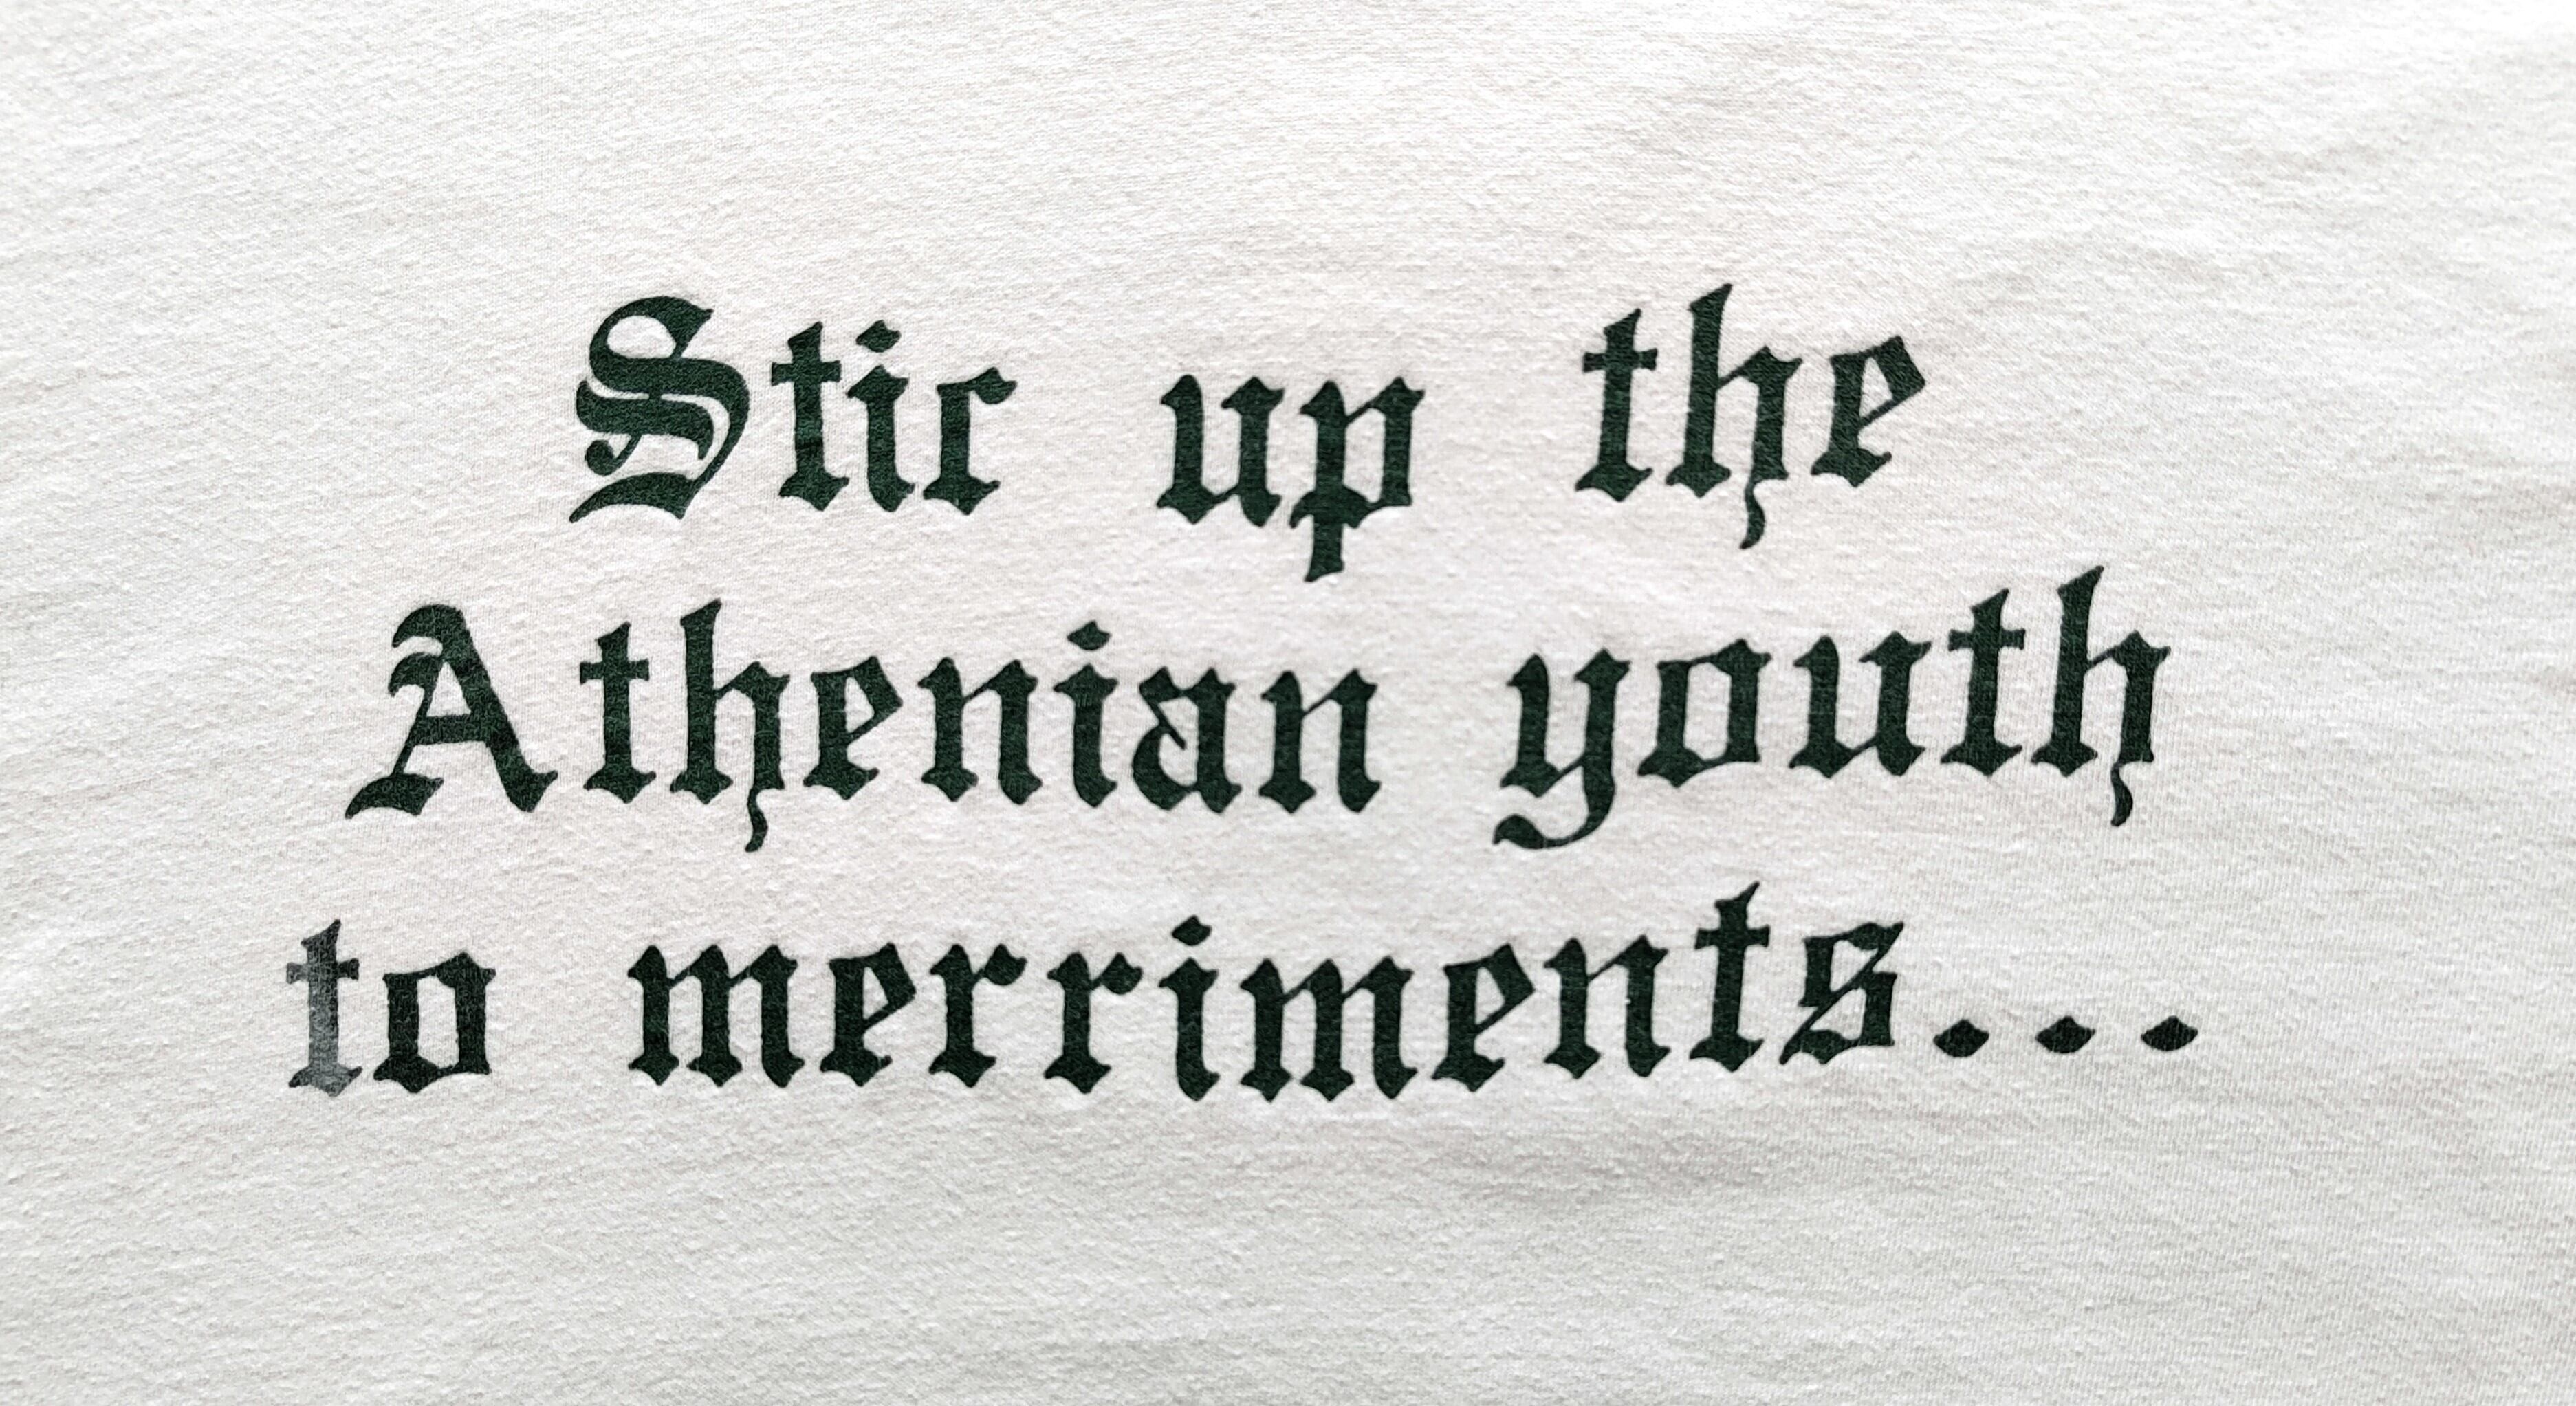 Stic up the
Athenian youth
to merriments...